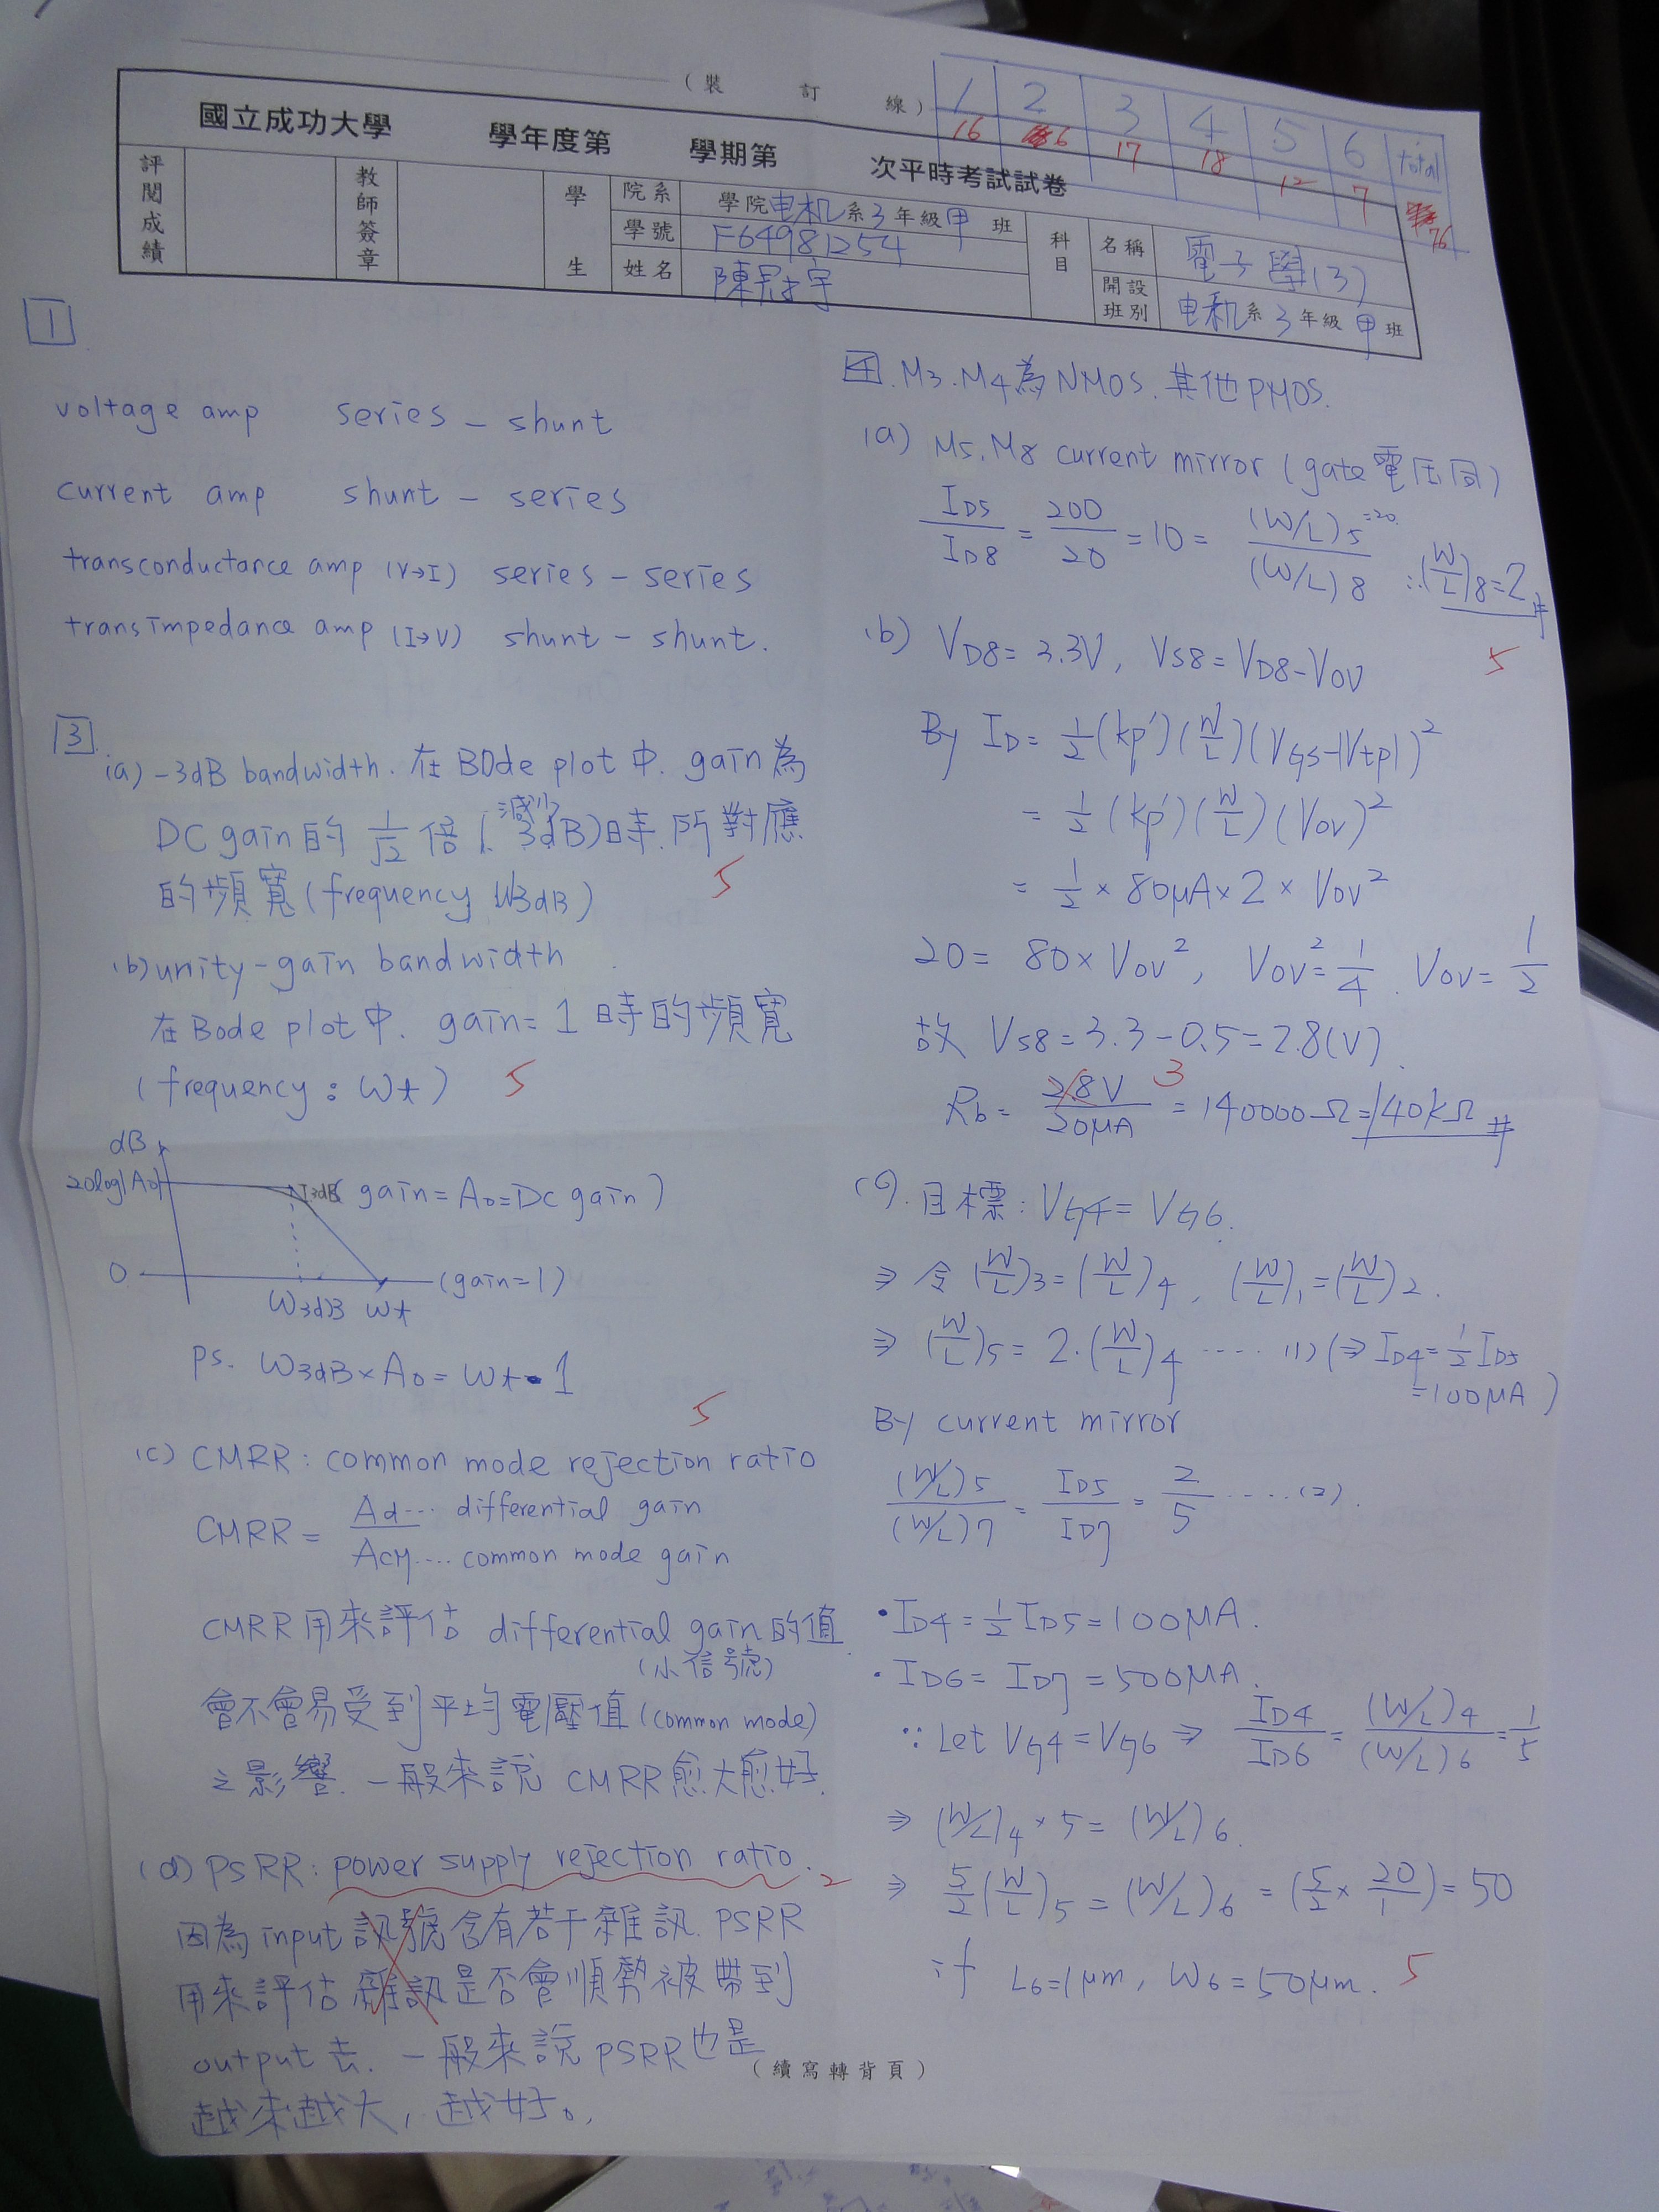 (裝 訂 線)
1 2 3 4 5 6 total
16 6 17 18 12 7 76
國立成功大學 學年度第 學期第 次平時考試試卷
評閱成績 教師簽章 學生
院系 學院电机系3年級甲班
學號 F64981254
姓名
科目 名稱 電子學(3)
開設班別 电机系3年級甲班
1
voltage amp series - shunt
current amp shunt - series
transconductance amp (V→I) series - series
transimpedance amp (I→V) shunt - shunt.
3
(a) -3dB bandwidth. 在BOde plot中. gain為
DC gain的 1/√2 倍(減少3dB)時.所對應
的頻寬(frequency ω3dB)
5
(b) unity-gain bandwidth
在Bode plot中. gain=1時的頻寬
(frequency: ωt) 5
dB
20log|A0| 3dB (gain=A0=DC gain)
0 (gain=1)
ω3dB ωt
ps. ω3dB×A0=ωt·1
5
(c) CMRR: common mode rejection ratio
CMRR = Ad…differential gain / ACM…common mode gain
CMRR用來評估 differential gain的值
(小信號)
會不會易受到平均電壓值(common mode)
之影響. 一般來說 CMRR愈大愈好.
(d) PSRR: power supply rejection ratio. 2
因為input訊號含有若干雜訊. PSRR
用來評估雜訊是否會順勢被帶到
output去. 一般來說PSRR也是
越來越大, 越好。
4. M3. M4為NMOS. 其他PMOS.
(a) M5. M8 current mirror (gate電压同)
ID5/ID8 = 200/20 = 10 = (W/L)5=20 / (W/L)8 ∴(W/L)8=2#
5
(b) VD8=3.3V, VS8=VD8-VOV
By ID = 1/2(kp')(W/L)(VGS-|Vtp|)²
= 1/2(kp')(W/L)(VOV)²
= 1/2 × 80μA × 2 × VOV²
20 = 80×VOV², VOV²=1/4. VOV=1/2
故 VS8=3.3-0.5=2.8(V).
Rb = 2.8V/20μA = 140000Ω=140kΩ #
3
(c). 目標: VG4=VG6.
⇒ 令(W/L)3=(W/L)4, (W/L)1=(W/L)2.
⇒ (W/L)5=2·(W/L)4 ····· (1) (⇒ID4=1/2 ID5
=100μA)
By current mirror
(W/L)5/(W/L)7 = ID5/ID7 = 2/5 ·····(2).
• ID4=1/2 ID5=100μA.
• ID6=ID7=500μA.
∵ Let VG4=VG6 ⇒ ID4/ID6 = (W/L)4/(W/L)6 = 1/5
⇒ (W/L)4×5=(W/L)6.
⇒ 5/2(W/L)5=(W/L)6=(5/2×20/1)=50
if L6=1μm, W6=50μm. 5
(續寫轉背頁)